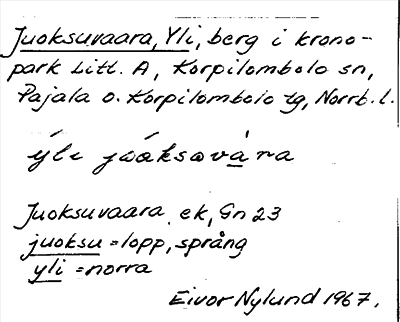 Juoksuvaara, Yli, berg i krono-
park Litt. A, Korpilombolo sn,
Pajala o. Korpilombolo tg, Norrb. l.
ýli jóoksavàra
Juoksuvaara ek, Gn 23
juoksu = lopp, språng
yli = norra
Eivor Nylund 1967.